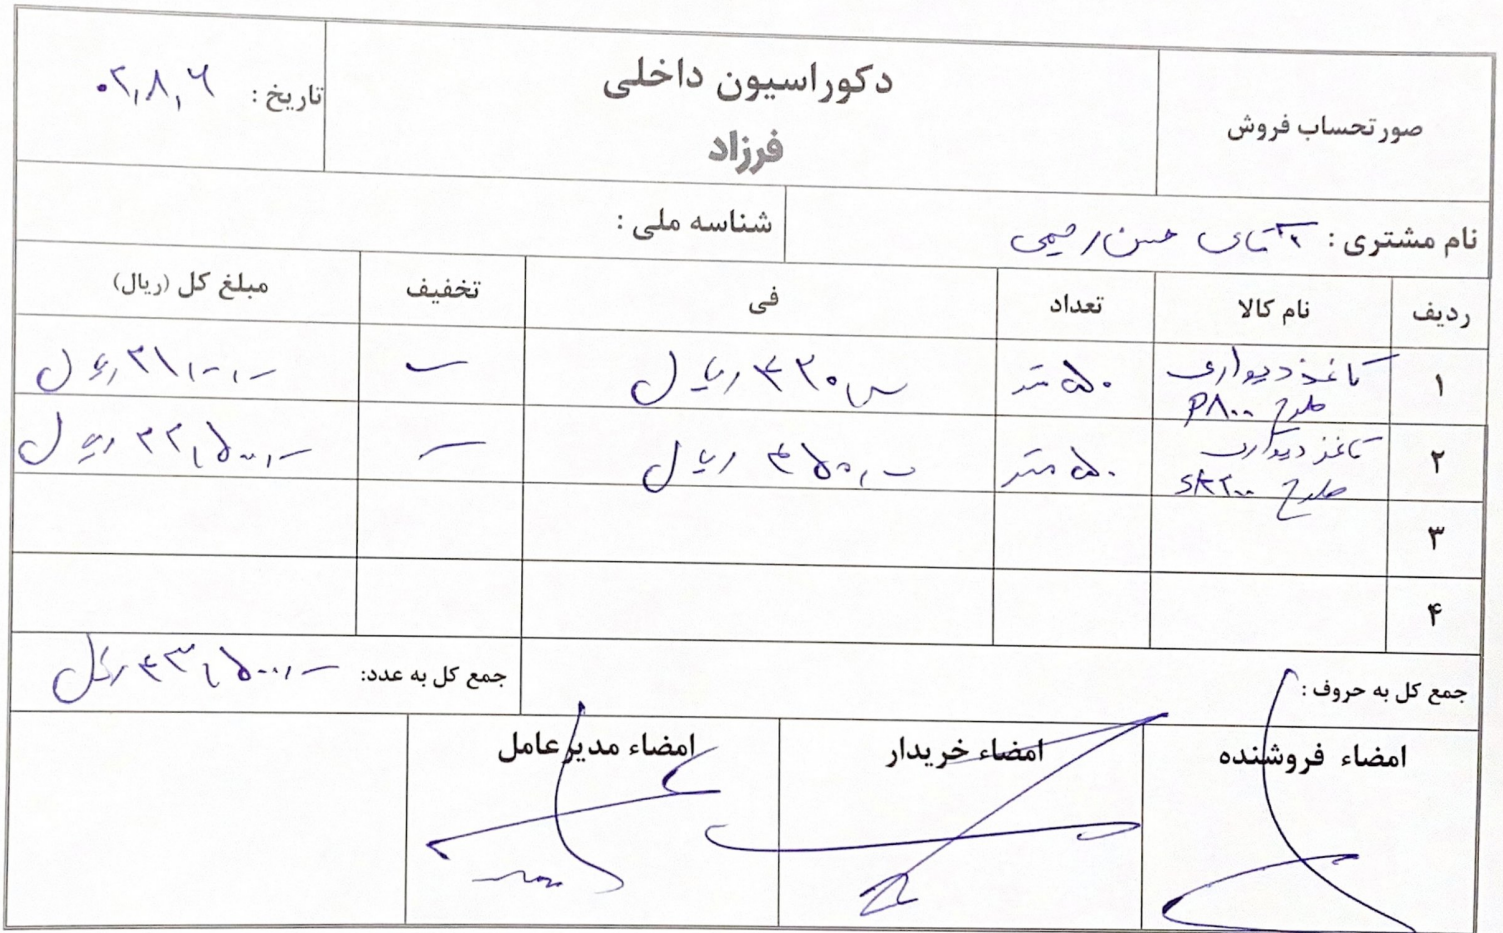 صورتحساب فروش
دکوراسیون داخلی
فرزاد
تاریخ : ۰۲,۸,۶
نام مشتری : آقای حسن رحیمی
شناسه ملی :
ردیف نام کالا تعداد فی تخفیف مبلغ کل (ریال)
۱ کاغذ دیواری طرح P۸۰۰ ۵۰ متر ۴۲۰,۰۰۰ ریال — ۲۱,۰۰۰,۰۰۰ ریال
۲ کاغذ دیواری طرح SK۲۰۰ ۵۰ متر ۴۵۰,۰۰۰ ریال — ۲۲,۵۰۰,۰۰۰ ریال
۳
۴
جمع کل به حروف :
جمع کل به عدد: ۴۳,۵۰۰,۰۰۰ ریال
امضاء فروشنده
امضاء خریدار
امضاء مدیرعامل